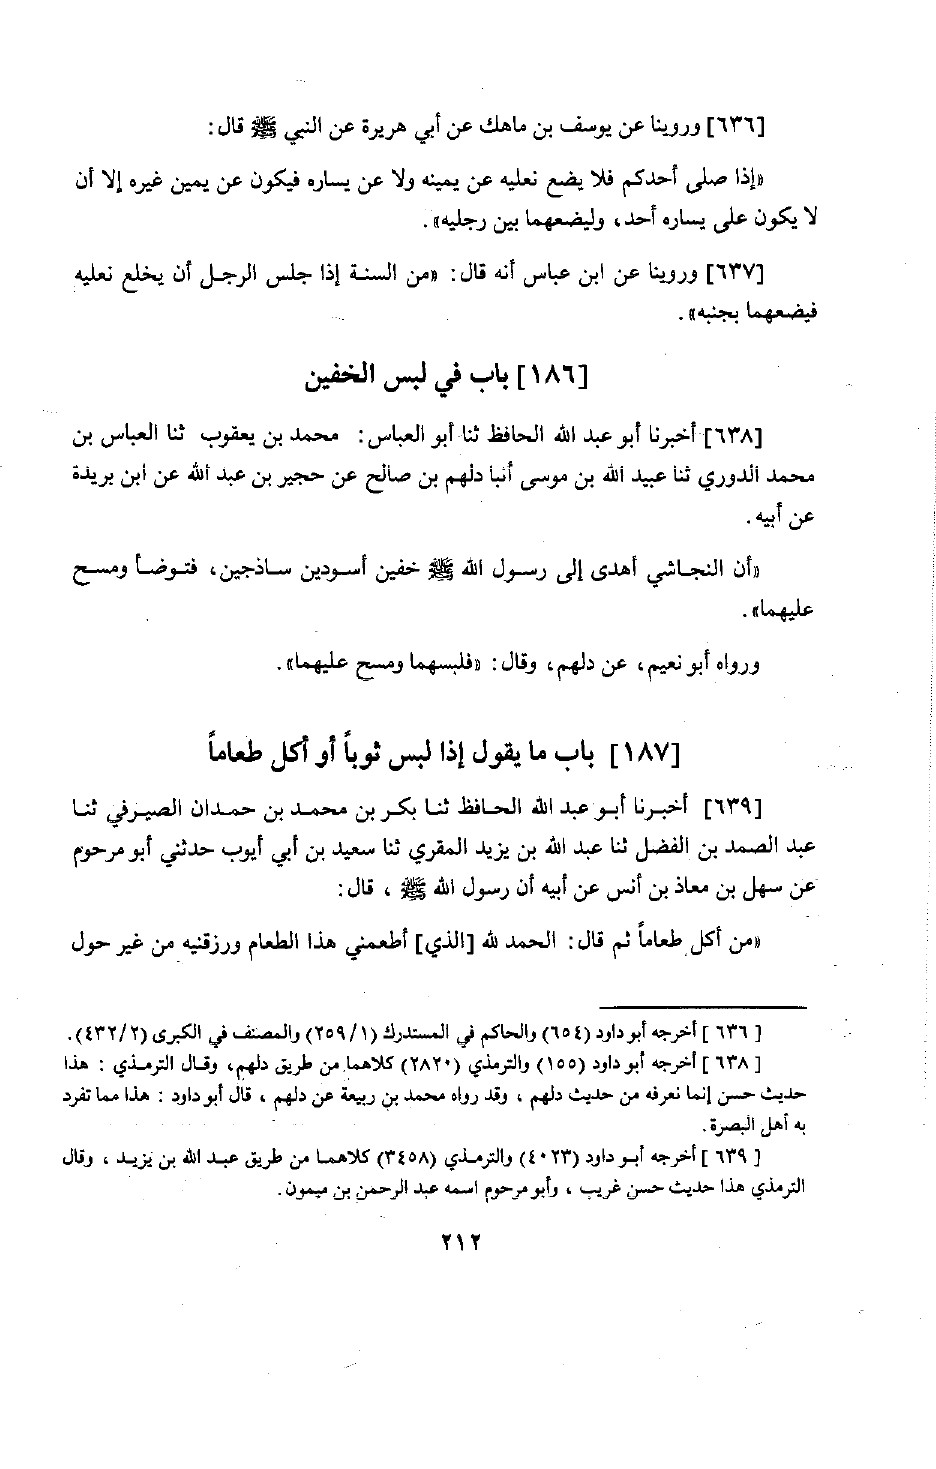 [٦٣٦] وروينا عن يوسف بن ماهك عن أبي هريرة عن النبي ﷺ قال:
«إذا صلى أحدكم فلا يضع نعليه عن يمينه ولا عن يساره فيكون عن يمين غيره إلا أن
لا يكون على يساره أحد، وليضعهما بين رجليه».
[٦٣٧] وروينا عن ابن عباس أنه قال: «من السنة إذا جلس الرجل أن يخلع نعليه
فيضعهما بجنبه».
[١٨٦] باب في لبس الخفين
[٦٣٨] أخبرنا أبو عبد الله الحافظ ثنا أبو العباس: محمد بن يعقوب ثنا العباس بن
محمد الدوري ثنا عبيد الله بن موسى أنبا دلهم بن صالح عن حجير بن عبد الله عن ابن بريدة
عن أبيه.
«أن النجاشي أهدى إلى رسول الله ﷺ خفين أسودين ساذجين، فتوضأ ومسح
عليهما».
ورواه أبو نعيم، عن دلهم، وقال: «فلبسهما ومسح عليهما».
[١٨٧] باب ما يقول إذا لبس ثوباً أو أكل طعاماً
[٦٣٩] أخبرنا أبو عبد الله الحافظ ثنا بكر بن محمد بن حمدان الصيرفي ثنا
عبد الصمد بن الفضل ثنا عبد الله بن يزيد المقري ثنا سعيد بن أبي أيوب حدثني أبو مرحوم
عن سهل بن معاذ بن أنس عن أبيه أن رسول الله ﷺ، قال:
«من أكل طعاماً ثم قال: الحمد لله [الذي] أطعمني هذا الطعام ورزقنيه من غير حول
[٦٣٦] أخرجه أبو داود (٦٥٤) والحاكم في المستدرك (١/٢٥٩) والمصنف في الكبرى (٢/٤٣٢).
[٦٣٨] أخرجه أبو داود (١٥٥) والترمذي (٢٨٢٠) كلاهما من طريق دلهم، وقال الترمذي: هذا
حديث حسن إنما نعرفه من حديث دلهم، وقد رواه محمد بن ربيعة عن دلهم، قال أبو داود: هذا مما تفرد
به أهل البصرة.
[٦٣٩] أخرجه أبو داود (٤٠٢٣) والترمذي (٣٤٥٨) كلاهما من طريق عبد الله بن يزيد، وقال
الترمذي هذا حديث حسن غريب، وأبو مرحوم اسمه عبد الرحمن بن ميمون.
٢١٢